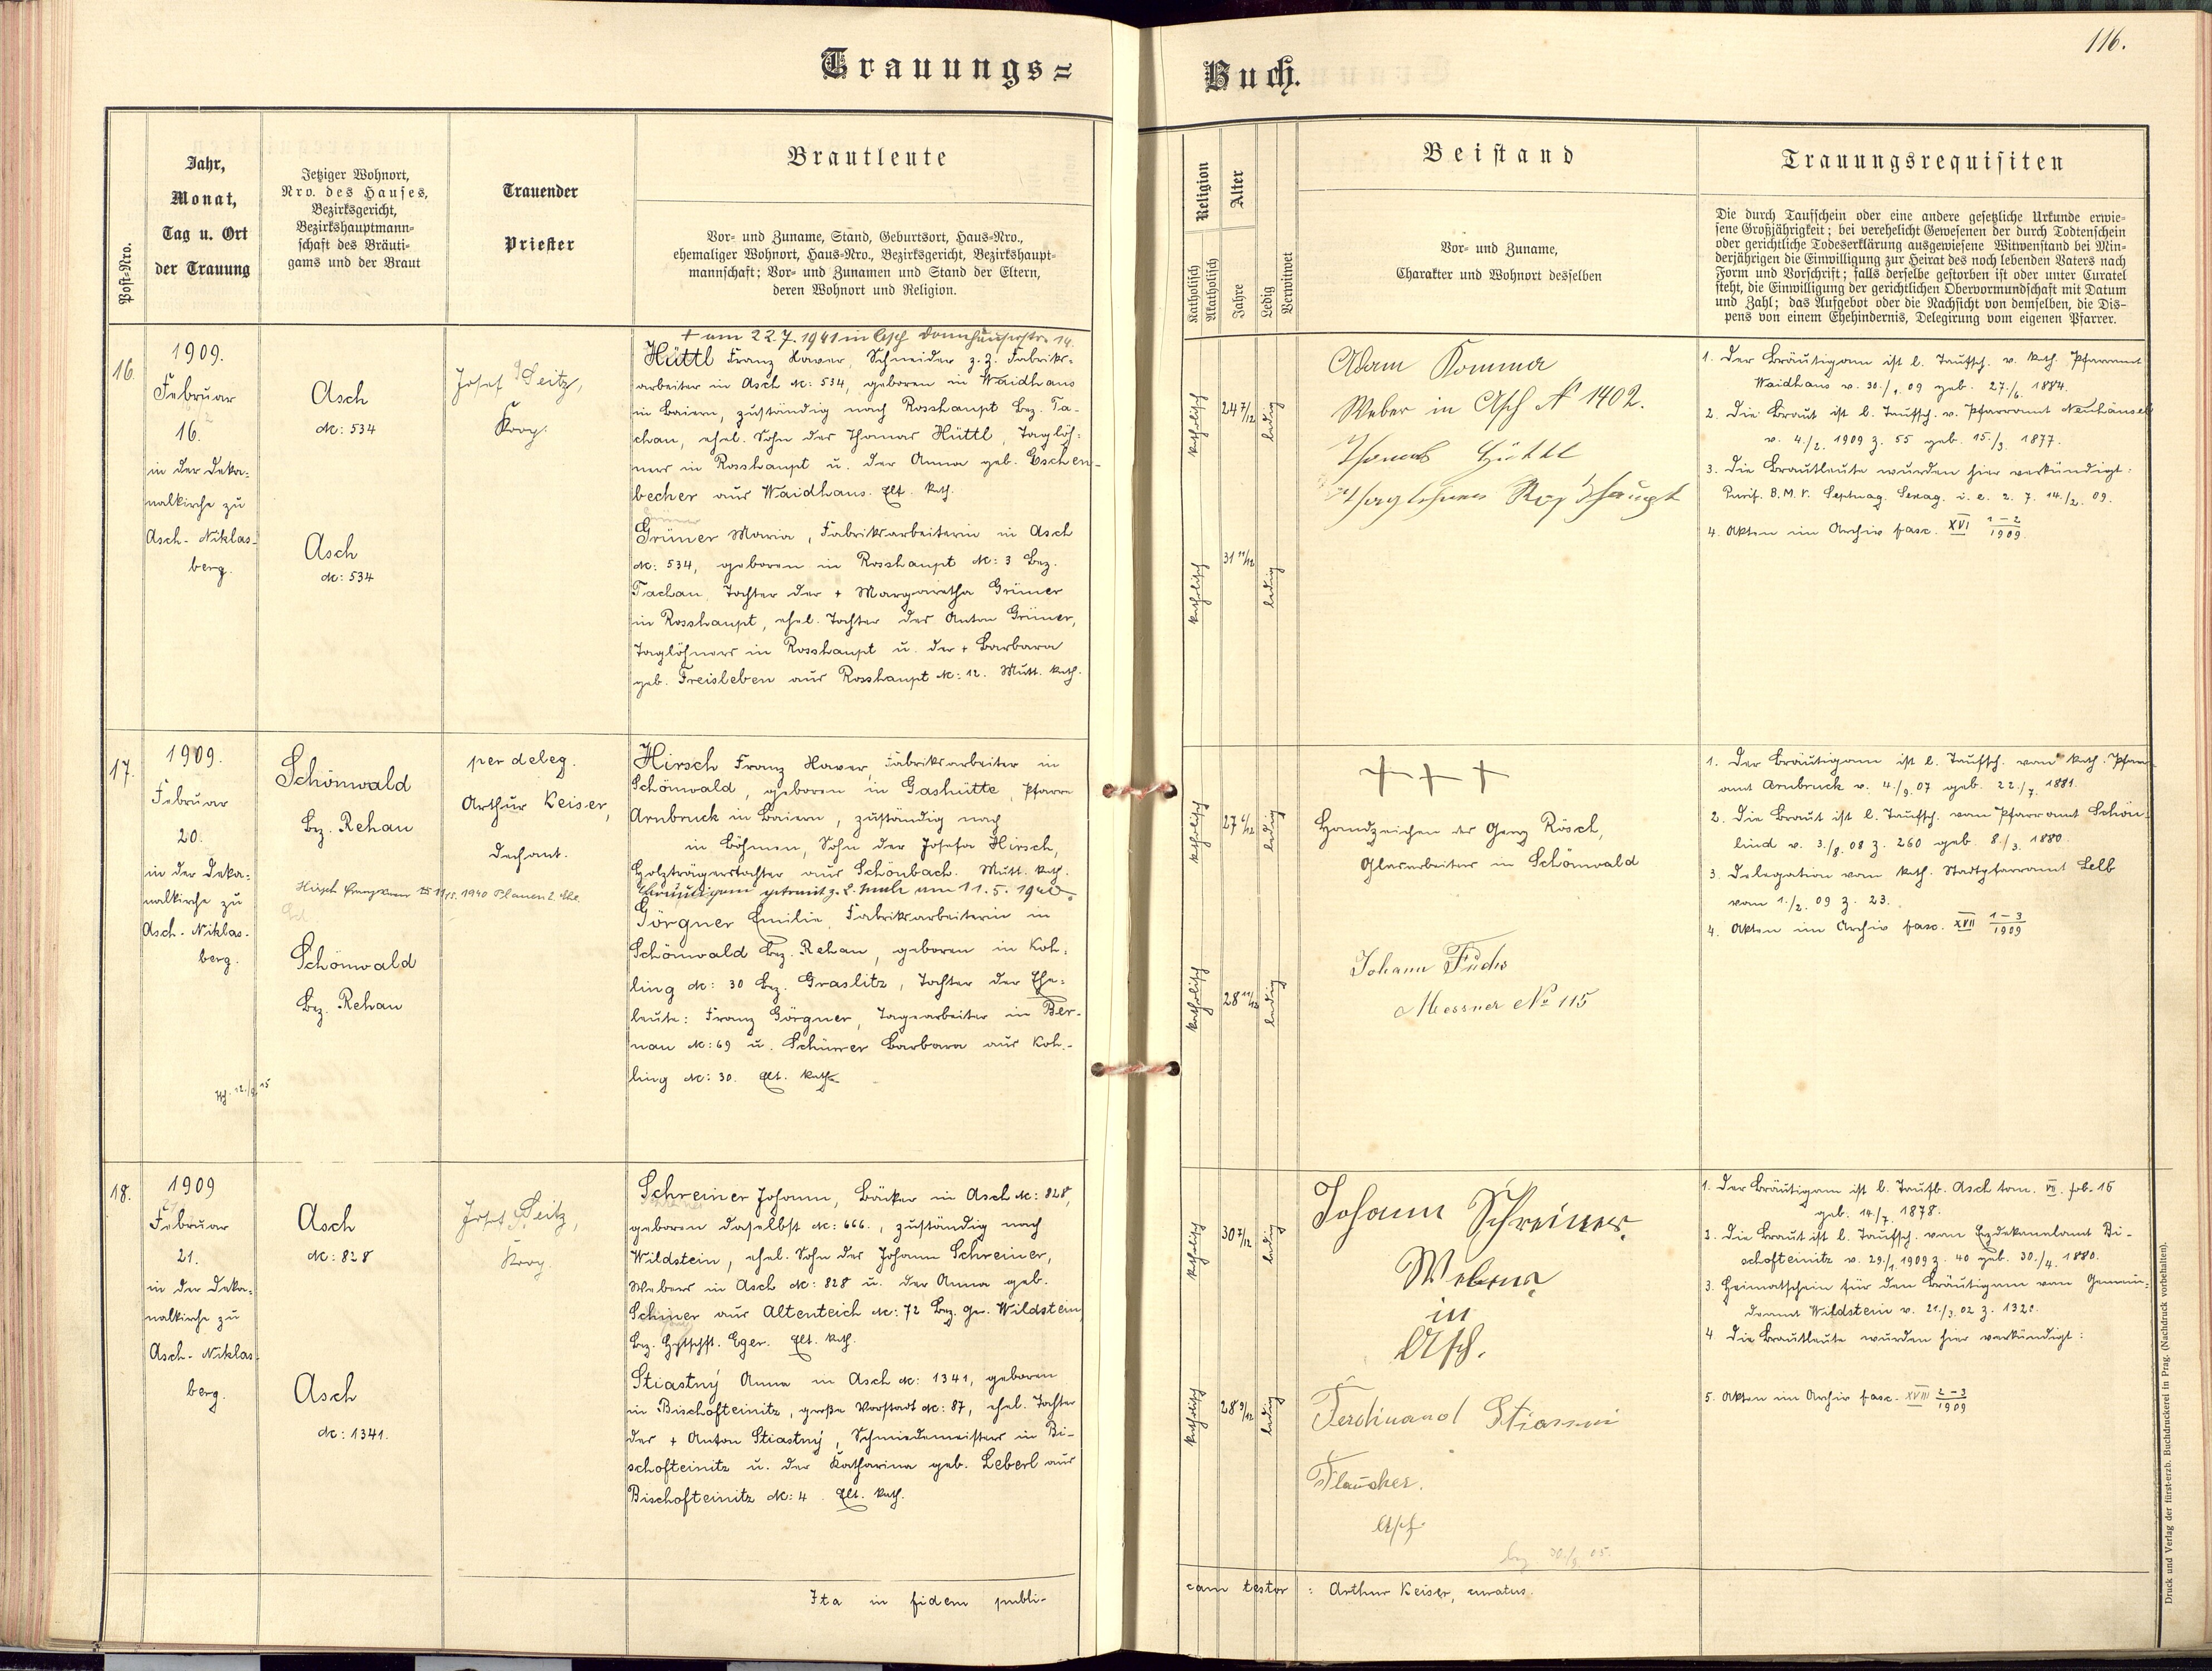 116.
Trauungs=
Buch.
Post=Nro.
Jahr,
Monat,
Tag u. Ort
der Trauung
Jetziger Wohnort,
Nro. des Hauses,
Bezirksgericht,
Bezirkshauptmann=
schaft des Bräuti=
gams und der Braut
Trauender
Priester
Brautleute
Vor= und Zuname, Stand, Geburtsort, Haus=Nro.,
ehemaliger Wohnort, Haus=Nro., Bezirksgericht, Bezirkshaupt=
mannschaft; Vor= und Zunamen und Stand der Eltern,
deren Wohnort und Religion.
Religion
Katholisch
Akatholisch
Alter
Jahre
Ledig
Verwitwet
Beistand
Vor= und Zuname,
Charakter und Wohnort desselben
Trauungsrequisiten
Die durch Taufschein oder eine andere gesetzliche Urkunde erwie=
sene Großjährigkeit; bei verehelicht Gewesenen der durch Todtenschein
oder gerichtliche Todeserklärung ausgewiesene Witwenstand bei Min=
derjährigen die Einwilligung zur Heirat des noch lebenden Vaters nach
Form und Vorschrift; falls derselbe gestorben ist oder unter Curatel
steht, die Einwilligung der gerichtlichen Obervormundschaft mit Datum
und Zahl; das Aufgebot oder die Nachsicht von demselben, die Dis=
pens von einem Ehehindernis, Delegirung vom eigenen Pfarrer.
16.
1909.
Februar
16.
in der Deka=
nalkirche zu
Asch-Niklas-
berg.
Asch
№: 534
Asch
№: 534
Josef Seitz,
Koop.
+ am 22.7.1941 in Asch 14.
Hüttl Franz Xaver, Schneider z. Z. Fabriks=
arbeiter in Asch №: 534, geboren in Waidhaus
in Baiern, zuständig nach Rosshaupt Bez. Ta-
chau, ehel. Sohn des Thomas Hüttl, Taglöh=
ners in Rosshaupt u. der Anna geb. Eschen-
becher aus Waidhaus. Elt. kath.
Grüner Maria, Fabriksarbeiterin in Asch
№: 534, geboren in Rosshaupt №: 3 Bez.
Tachau, Tochter der + Margaretha Grüner
in Rosshaupt, ehel. Tochter des Anton Grüner,
Taglöhners in Rosshaupt u. der + Barbara
geb. Freisleben aus Rosshaupt №: 12. Mutt. kath.
katholisch
24 7/12
ledig
katholisch
31 11/12
ledig
Adam Kommer
Weber in Asch № 1402.
Thomas Hüttl
Taglöhner Roßhaupt
1. Der Bräutigam ist l. Taufsch. v. kath. Pfarramt
Waidhaus v. 30./1. 09 geb. 27./6. 1884.
2. Die Braut ist l. Taufsch. v. Pfarramt Neuhäusel
v. 4./2. 1909 Z. 55 geb. 15./3. 1877.
3. Die Brautleute wurden hier verkündigt:
Purif. B.M.V. Septuag. Sexag. i. e. 2. 7. 14./2. 09.
4. Akten im Archiv fasc. XVI 1-2/1909.
17.
1909.
Februar
20.
in der Deka=
nalkirche zu
Asch-Niklas-
berg.
Schönwald
Bez. Rehau
Schönwald
Bez. Rehau
per deleg.
Arthur Keiser,
Dechant.
1940 Plauen 2. Ehe
Hirsch Franz Xaver, Fabriksarbeiter in
Schönwald, geboren in Gashütte, Pfarre
Arnbruck in Baiern, zuständig nach
in Böhmen, Sohn der Josefa Hirsch,
Holzträgerstochter aus Schönbach. Mutt. kath.
Bräutigam getraut z. 2. male am 11.5.1940.
Görgner Emilie, Fabriksarbeiterin in
Schönwald Bez. Rehau, geboren in Koh=
ling №: 30 Bez. Graslitz, Tochter der Ehe=
leute: Franz Görgner, Tagearbeiter in Ber-
nau №: 69 u. Schürrer Barbara aus Koh-
ling №: 30. Elt. kath.
katholisch
ledig
katholisch
28 11/12
ledig
+++
Handzeichen des Georg Rösch,
Glasarbeiter in Schönwald
Johann Fuchs
Messner № 115
1. Der Bräutigam ist l. Taufsch. vom kath. Pfarr
amt Arnbruck v. 4./9. 07 geb. 22./7. 1881.
2. Die Braut ist l. Taufsch. vom Pfarramt Schön-
lind v. 3./8. 08 Z. 260 geb. 8./3. 1880.
3. Delegation vom kath. Stadtpfarramt Selb
vom 1./2. 09 Z. 23.
4. Akten im Archiv fasc. XVII 1-3/1909
18.
1909
Februar
21.
in der Deka=
nalkirche zu
Asch-Niklas-
berg.
Asch
№: 828
Asch
№: 1341.
Josef Seitz,
Koop.
Schreiner Johann, Bäcker in Asch №: 828,
geboren daselbst №: 666., zuständig nach
Wildstein, ehel. Sohn des Johann Schreiner,
Webers in Asch №: 828 u. der Anna geb.
Schiner aus Altenteich №: 72 Bez. Ger. Wildstein,
Bez. Hptschft. Eger. Elt. kath.
Stiastný Anna in Asch №: 1341, geboren
in Bischofteinitz, große Vorstadt №: 87, ehel. Tochter
des + Anton Stiastný, Schmiedemeisters in Bi-
schofteinitz u. der Katharina geb. Leberl aus
Bischofteinitz №: 4. Elt. kath.
katholisch
30 7/12
ledig
katholisch
28 9/12
ledig
Johann Schreiner.
Weber
in
Asch.
Ferdinand Stiassni
Asch
1. Der Bräutigam ist l. Taufb. Asch tom. VII. fol. 16
geb. 14./7. 1878.
2. Die Braut ist l. Taufsch. vom Erzdekanalamt Bi-
schofteinitz v. 29./1. 1909 Z. 40 geb. 30./4. 1880.
3. Heimatschein für den Bräutigam vom Gemein=
deamt Wildstein v. 21./3. 02 Z. 1320.
4 Die Brautleute wurden hier verkündigt:
5. Akten im Archiv fasc. XVIII 2-3/1909
Ita in fidem publi-
cam testor: Arthur Keiser, curatus.
Druck und Verlag der fürst-erzb. Buchdruckerei in Prag. (Nachdruck vorbehalten).